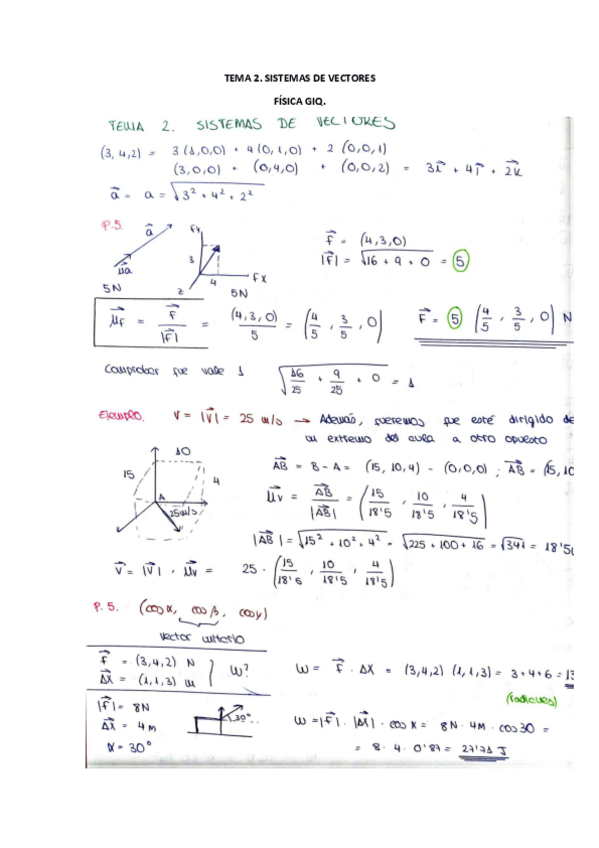 TEMA 2. SISTEMAS DE VECTORES
FÍSICA GIQ.
TEMA 2. SISTEMAS DE VECTORES
(3, 4, 2) = 3 (1,0,0) + 4 (0,1,0) + 2 (0,0,1)
(3,0,0) + (0,4,0) + (0,0,2) = 3i + 4j + 2k
a = a = √3² + 4² + 2²
P.5. a fy f = (4,3,0)
3 |f| = √16 + 9 + 0 = 5
μa 4 fx
5N z 5N
μf = f/|f| = (4,3,0)/5 = (4/5, 3/5, 0) F = 5 (4/5, 3/5, 0) N
Comprobar que vale 1 √16/25 + 9/25 + 0 = 1
Ejemplo. V = |V| = 25 m/s → Además, queremos que esté dirigido de
un extremo del aula a otro opuesto
10 AB = B - A = (15, 10, 4) - (0,0,0) ; AB = (15, 10
15 4 A 25m/s μv = AB/|AB| = (15/18'5, 10/18'5, 4/18'5)
|AB| = √15² + 10² + 4² = √225 + 100 + 16 = √341 = 18'5
V = |V| · μv = 25 · (15/18'5, 10/18'5, 4/18'5)
P.5. (cos α, cos β, cos γ)
vector unitario
f = (3,4,2) N W? W = F · ΔX = (3,4,2) (1,1,3) = 3+4+6 = 13
ΔX = (1,1,3) m
(radianes)
|f| = 8N 30°. W = |f| · |ΔX| · cos α = 8N · 4M · cos 30 =
ΔX = 4m
α = 30° = 8 · 4 · 0'87 = 27'71 J